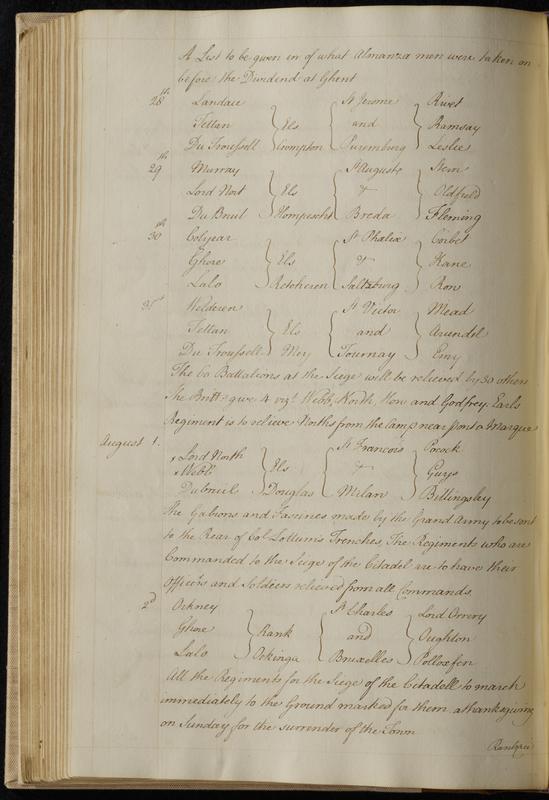 A List to be given in of what Almanza men were taken on
before the Dividend at Ghent
28th Landau St Jerome Rivet
Tettau Els and Ramsay
Du Troussell Crompton Luxemburg Leslie
29th Murray St Auguste Stern
Lord Nort Els & Oldfield
Du Bruil Hompesch Breda Fleming
30th Colyear St Phelix Corbet
Ghore Els & Kane
Lalo Retcheren Saltzburg Ron
31st Welderen St Victor Mead
Tettau Els and Arundel
Du Troussell Mey Tournay Emy
The 60 Battalions at the Siege will be relieved by 30 others
The Britt: give 4 vizt Webb, North, How and Godfrey. Earls
Regiment is to relieve Norths from the Camp near pont a Marque
August 1. Lord North St Francois Pocock
Webb Els & Guys
Dubruil Douglas Milan Billingsley
The Gabions and Fassines made by the Grand Army to be sent
to the Rear of Col Lottums Trenches, The Regiments who are
Commanded to the Siege of the Citadel are to have their
Officers and Soldiers relieved from all Commands
2d Orkney St Charles Lord Orrery
Ghore Rank and Oughton
Lalo Orkinga Bruxelles Polloxfen
All the Regiments for the Siege of the Citadell to march
immediately to the Ground marked for them, a thanksgiving
on Sunday for the surrender of the Town